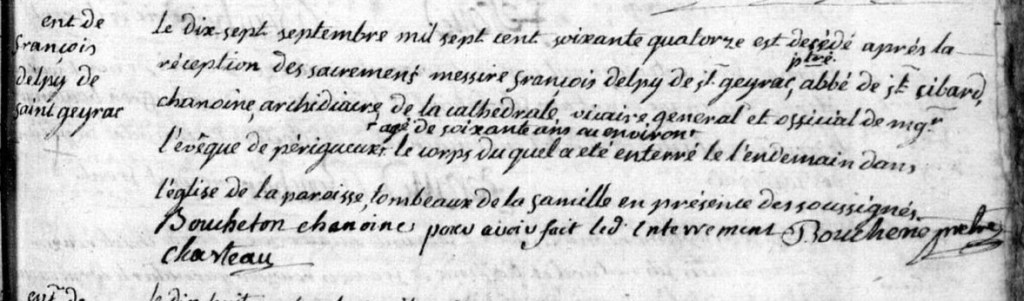 ent de
françois
delpy de
saint geyrac
le dix-sept septembre mil sept cent soixante quatorze est decédé après la
ptre.
réception des sacremens messire françois delpy de st. geyrac, abbé de st. cibard,
chanoine, archidiacre de la cathédrale, vicaire general et official de mgr.
agé de soixante ans au environt
l'évêque de périgueux. le corps du quel a eté enterré le l'endemain dans
l'église de la paroisse, tombeaux de la famille en présence des soussignés
Boucheton chanoine pour avoir fait led. Enterrement Bouchene pretre
Charteau
ent. de
le dix huit